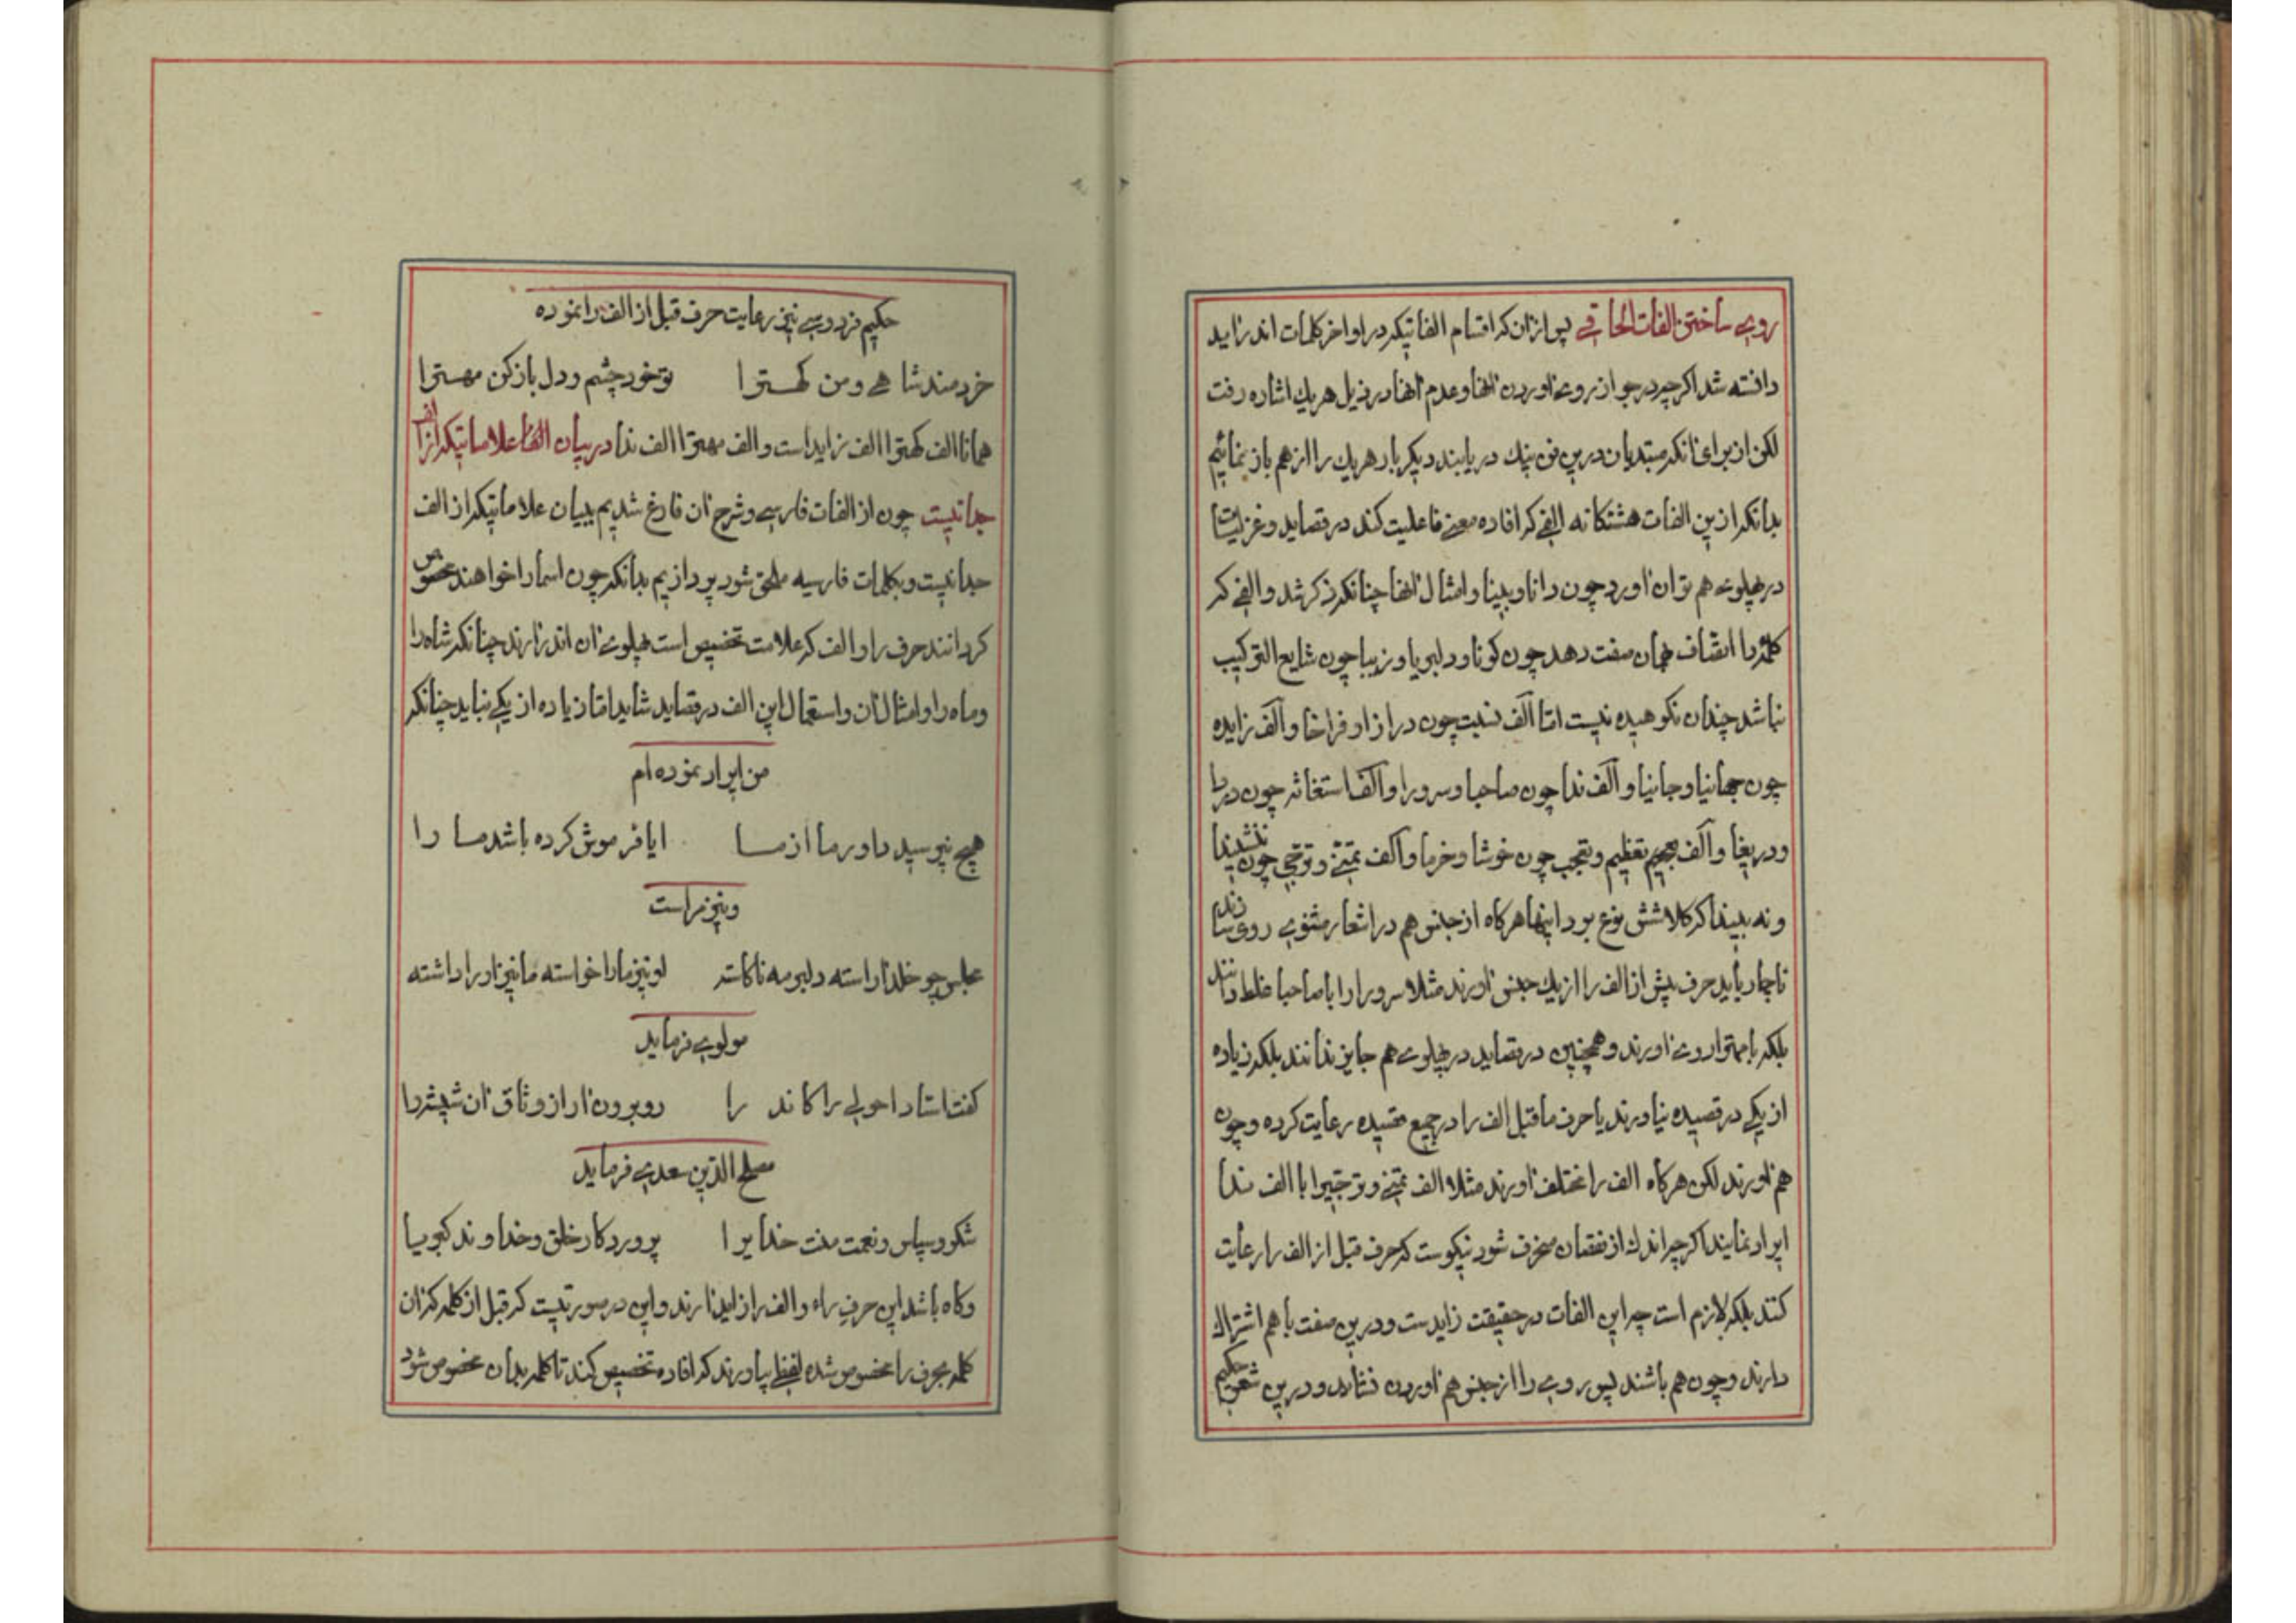 روی ساختن الفات الحاقی پس ازان که اقسام الفاتیکه در اواخر کلمات اند زاید
دانسته شد اکرچه در جواز روی اوردن انها و عدم انها در ذیل هریك اشاره رفت
لکن از برای انکه مبتدیان درین فن نیك دریابند دیکر بار هریك را از هم باز نمائیم
بدانکه ازین الفات هشتکانه الفی که افاده معنی فاعلیت کند در قصاید و غزلیات
در پهلوی هم توان اورد چون دانا و بینا و امثال انها چنانکه ذکر شد و الفی که
کلمه را اتصاف بهمان صفت دهد چون کونا و دلبریا و زیبا چون شایع الترکیب
نباشد چندان نکوهیده نیست اما الف نسبت چون درازا و فراخا و الف زایده
چون جهانیا و جانیا و الف ندا چون صاحبا و سرورا و الف استغاثه چون دردا
و دریغا و الف تعظیم و تعجب چون خوشا و خرما و الف تمنی و ترجی چون ننشیندا
و نه بیندا که کلا شش نوع بود اینها هرکاه از جنس هم در اشعار مثنوی روی سازند
ناچار باید حرف پیش از الف را از یك جنس اورند مثلا سرورا را با صاحبا غلط دانند
بلکه با مهترا روی اورند و همچنین در قصاید در پهلوی هم جایز ندانند بلکه زیاده
از یکی در قصیده نیاورند یا حرف ماقبل الف را در جمیع قصیده رعایت کرده و چون
هم اورند لکن هرکاه الف را مختلف اورند مثلا الف تمنی و ترجی را با الف ندا
ایراد نمایند اکرچه اندك از نقصان منحرف شود نیکوست که حرف قبل از الف را رعایت
کنند بلکه لازم است چه این الفات در حقیقت زایدست و درین صفت با هم اشتراك
دارند و چون هم باشند پس روی را از جنس هم اوردن نشاید و درین شعر حکیم
حکیم فردوسی نیز رعایت حرف قبل از الف را نموده
خردمند شاهی و من کهترا تو خود چشم و دل باز کن مهترا
همانا الف کهترا الف زاید است و الف مهترا الف ندا در بیان الفا علاماتیکه از الف
جدا نیست چون از الفات فارسی و شرح ان فارغ شدیم ببیان علاماتیکه از الف
جدا نیست و بکلمات فارسیه ملحق شود پردازیم بدانکه چون اسما را خواهند مخصوص
کردانند حرف را و الف که علامت تخصیص است پهلوی ان اندر ارند چنانکه شاه را
و ماه را و امثال ان و استعمال این الف در قصاید شاید اما زیاده از یکی نباید چنانکه
من ایراد نموده ام
هیچ نپرسید داور ما از ما ایا فرموش کرده باشد ما را
و نیز مراست
مجلس چو خلد اراسته دلبر مه ناکاسته او نیز ما را خواسته ما نیز او را داشته
مولوی فرماید
کفت استاد احولی را کاندرا رو برون ار از وثاق ان شیشه را
مصلح الدین سعدی فرماید
شکر و سپاس و نعمت منت خدایرا پروردکار خلق و خداوند کبریا
و کاه باشد این حرف راء و الف را زاید ارند و این در صورتیست که قبل از کلمه کزان
کلمه بحرف را مخصوص شده لفظی بیاورند که افاده تخصیص کند تا کلمه بدان مخصوص شود